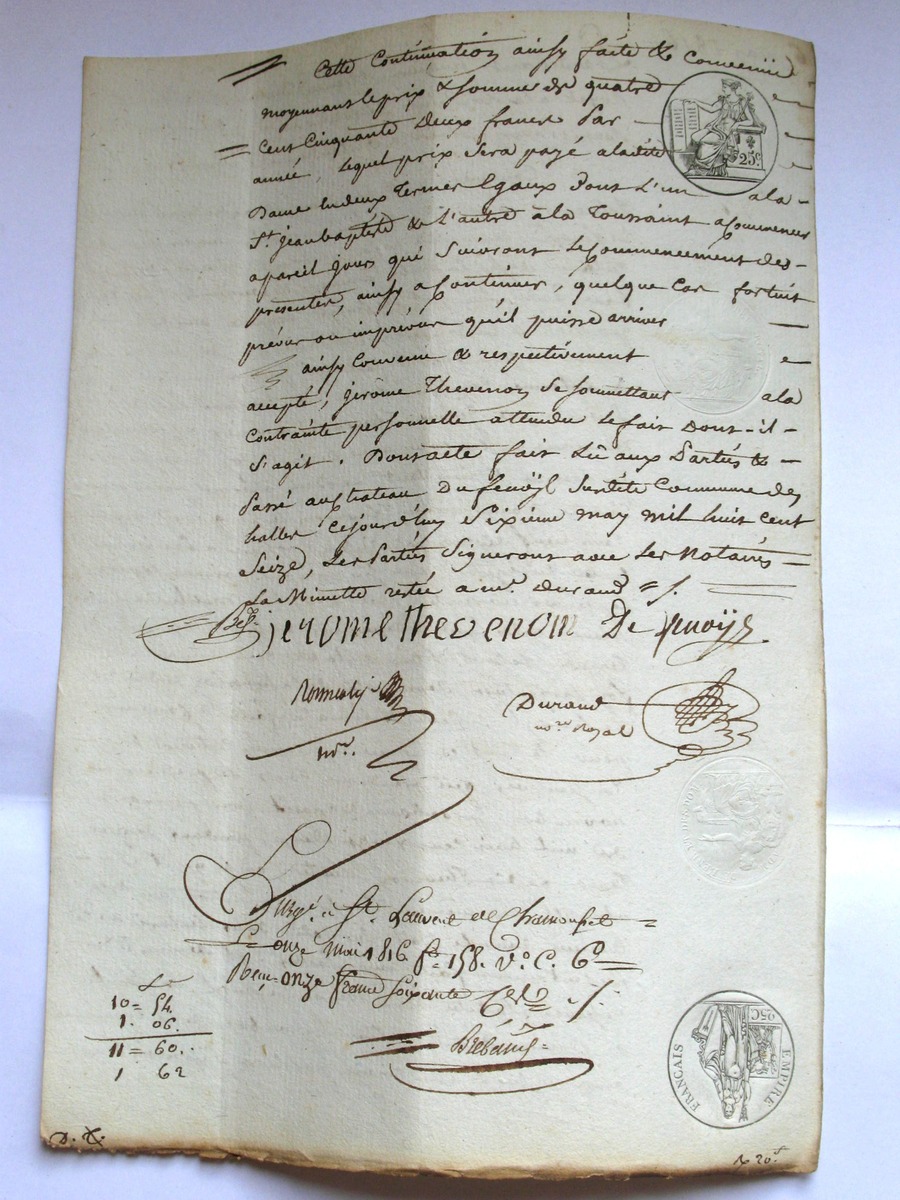 Cette Continuation ainsy faite & Convenüe
moyennant le prix & somme de quatre
Cent Cinquante deux francs Par
année, lequel prix sera payé a ladite
Dame en deux Termes Egaux dont L'un ala
St. jean baptiste & L'autre à la Toussaint a Commencer
a pareil jours qui suivront le Commencement des
presentes, ainsy a Continuer, quelque Cas fortuit
prévus ou imprévus qu'il puisse arriver
ainsy Convenu & respectivement
accepté, jerôme Thevenon se soumettant ala
Contrainte personnelle attendu le fait dont il
s'agit. Dont acte fait Lû aux Parties &
Passé au chateau Du fenoÿl susdite Commune des
halles Cejourd'huy Sixième may mil huit cent
Seize, Les Parties Signeront avec Les Notaires
La Minutte restée a me. Durand
jerome thevenom De
Durand
nore. Royal
nre.
25c.
Enregé. à St. Laurent de Chamousset
Le onze mai 1816 fo. 158. Vo. C. 6
Reçu onze francs soixante
10 = 54.
1. 06.
11 = 60.
1 62
EMPIRE FRANÇAIS
25C